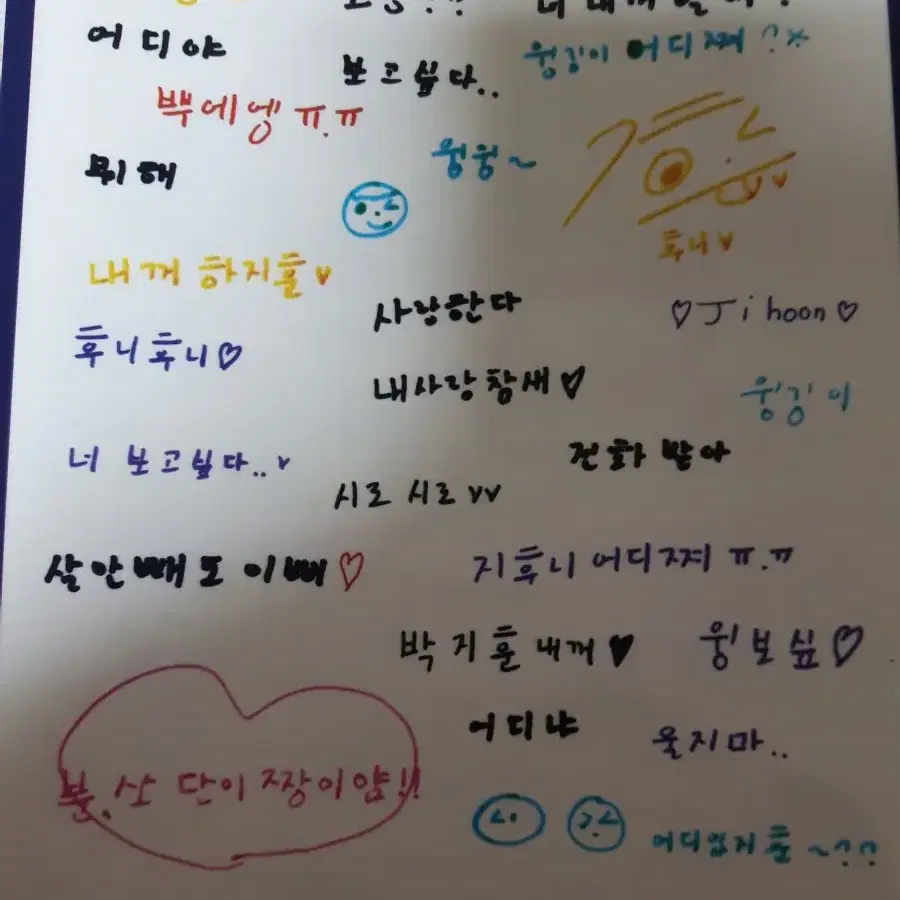 어디야
보고싶다..
웡깅이 어디쪄 ?
뿌에엥 ㅠ.ㅠ
뭐해
웡웡~
후니♥
내꺼 하지훈♥
사랑한다
♡Jihoon♡
후니후니♡
내사랑참새♥
윙깅이
너 보고싶다..♥
전화 받아
시로 시로 vv
살안빼도 이뻐♡
지후니 어디쪄 ㅠ.ㅠ
박지훈내꺼♥
윙보싶♡
어디냐
울지마..
분.산 단이 짱이얌!!
어디있지훈~??